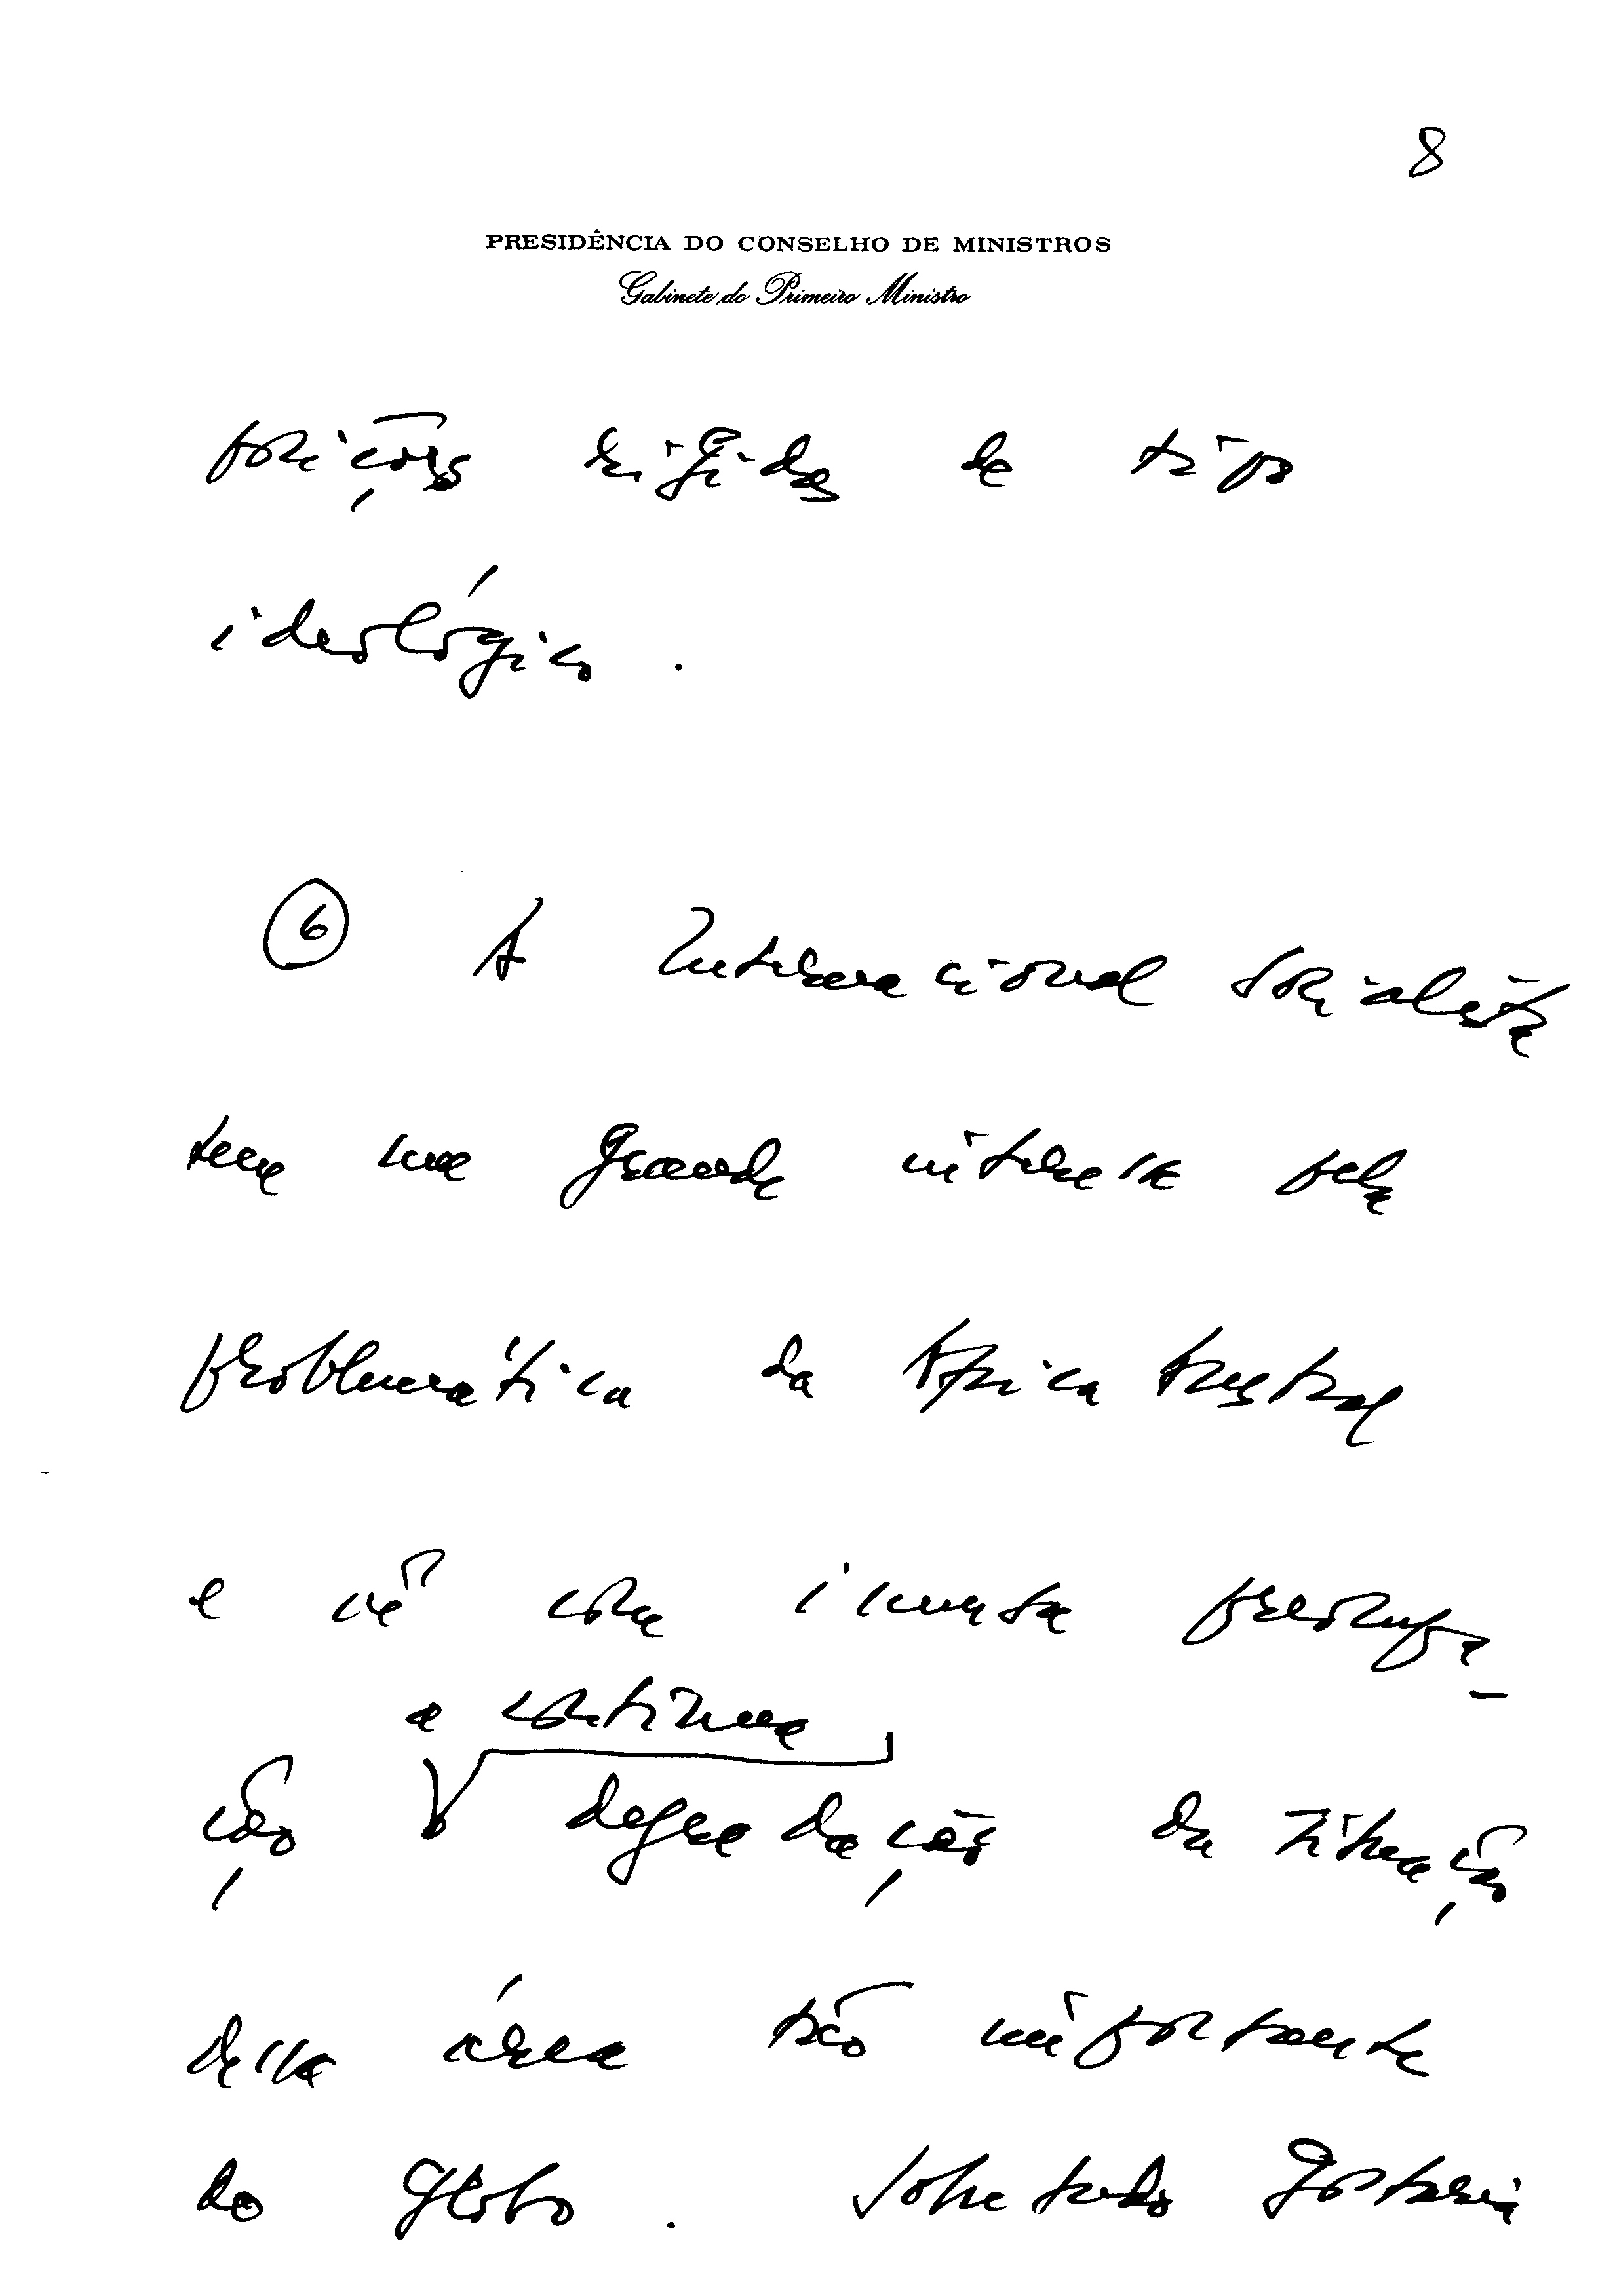 8
PRESIDÊNCIA DO CONSELHO DE MINISTROS
Gabinete do Primeiro Ministro
posições rígidas de tipo
ideológico.
6 A Internacional Socialista
tem um grande interesse pela
problemática da África Austral
e vê com imensa preocupa-
a contínua
ção degradação da situação
dessa área tão importante
do globo. Sobretudo gostaria